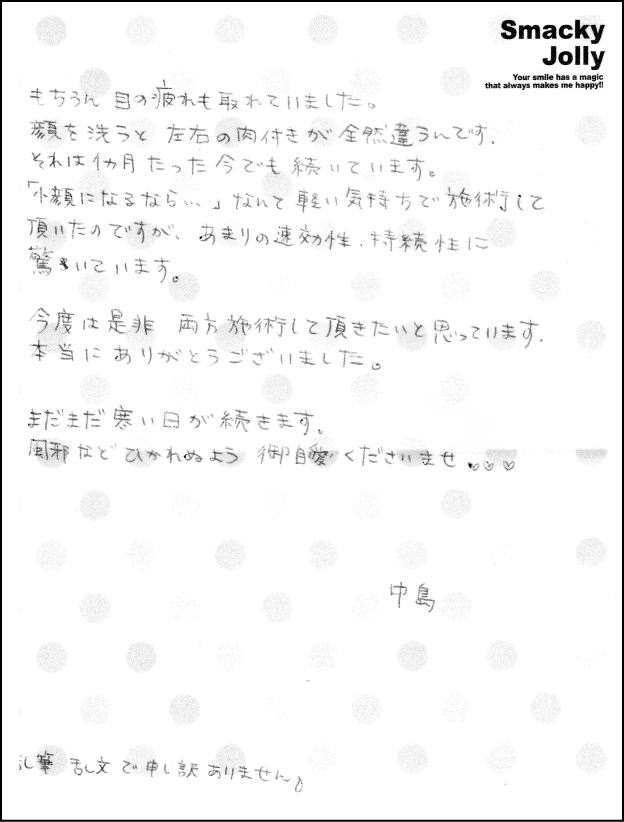 Smacky
Jolly
Your smile has a magic
that always makes me happy!!
もちろん 目の疲れも取れていました。
顔を洗うと 左右の肉付きが全然違うんです.
それは1カ月たった今でも続いています。
「小顔になるなら…」なんて軽い気持ちで施術して
頂いたのですが、あまりの速効性、持続性に
驚いています。
今度は是非 両方施術して頂きたいと思っています.
本当にありがとうございました。
まだまだ寒い日が続きます。
風邪などひかれぬよう 御自愛くださいませ。♡♡♡
中島
乱筆 乱文で申し訳ありません。